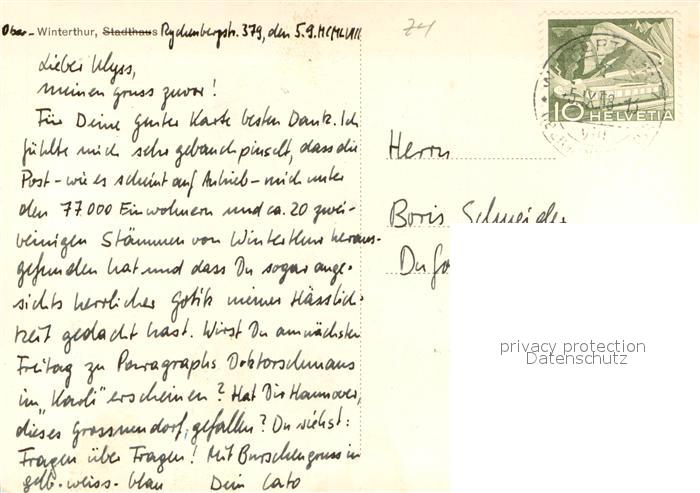 Ober-Winterthur, Stadthaus Rychenbergstr. 379, den 5.9.MCMLVIII
Lieber Ulyss,
meinen gruss zuvor!
Für Deine guter Karte besten Dank. Ich
fühlte mich sehr gebauchpinselt, dass die
Post - wie es scheint auf Anhieb - mich unter
den 77.000 Einwohnern und ca. 20 zwei-
beinigen Stämmen von Winterthur heraus-
gefunden hat und dass Du sogar ange-
sichts herrlicher Gotik meiner Hässlich-
keit gedacht hast. Wirst Du am nächsten
Freitag zu Paragraphs Doktorschmaus
im "Karli" erscheinen? Hat Dir Hannover,
dieses Grossmendorf, gefallen? Du siehst:
Fragen über Fragen! Mit Burschengruss in
gelb-weiss-blau Dein Cato
74
10 HELVETIA
Herrn
Boris Schneider
privacy protection
Datenschutz